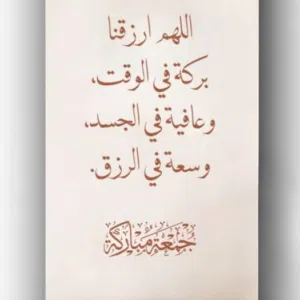 اللهم ارزقنا
بركة في الوقت،
وعافية في الجسد،
وسعة في الرزق.
جمعة مباركة